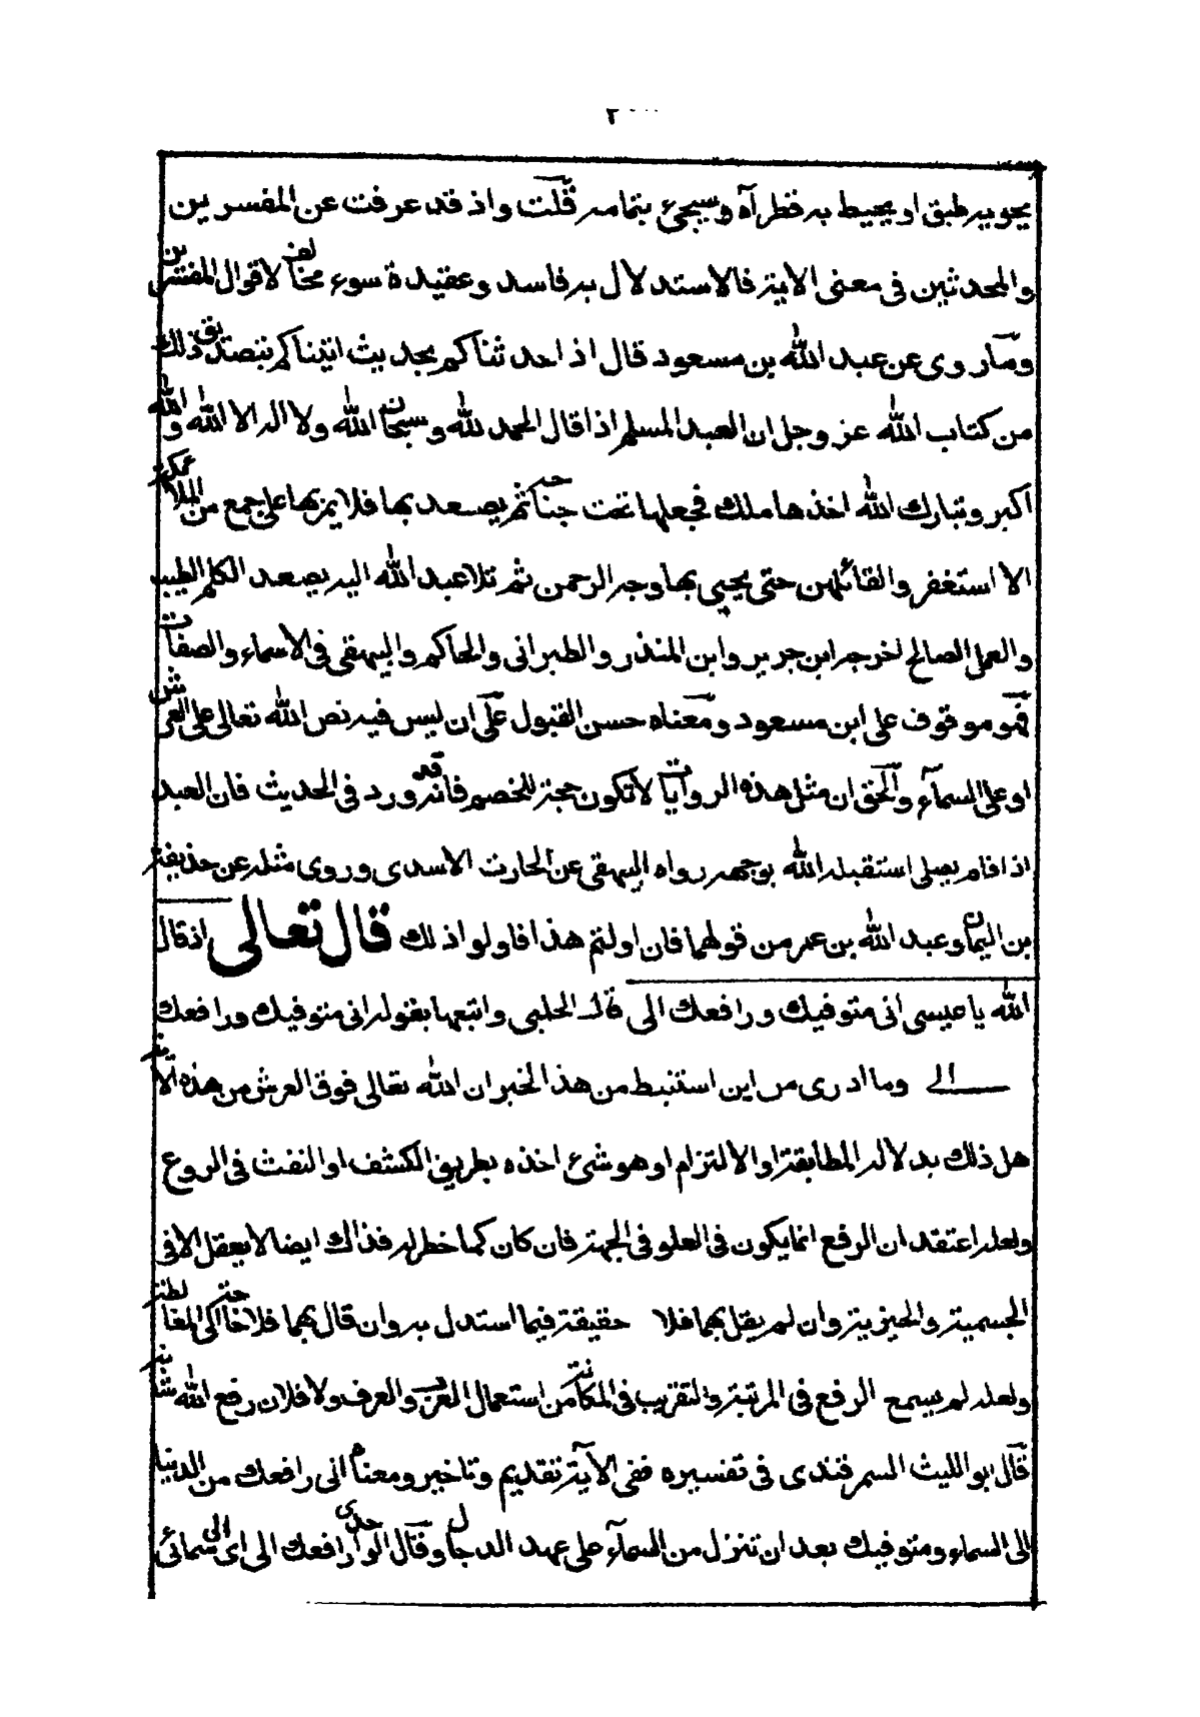 يحويه طبق او يحيط به قطر آه وسيجئ بتمامه قلت واذ قد عرفت عن المفسرين
والمحدثين فى معنى الاية فالاستدلال به فاسد وعقيدة سوء مخالفة لاقوال المفسرين
وما روى عن عبد الله بن مسعود قال اذا حدثناكم بحديث اتيناكم بتصديق ذلك
من كتاب الله عز وجل ان العبد المسلم اذا قال الحمد لله وسبحان الله ولا اله الا الله والله
اكبر وتبارك الله اخذها ملك فجعلها تحت جناحه ثم يصعد بها فلا يمر بها على جمع من الملائكة
الا استغفر والقائلهن حتى يحيى بها وجه الرحمن ثم تلا عبد الله اليه يصعد الكلم الطيب
والعمل الصالح اخرجه ابن جرير وابن المنذر والطبرانى والحاكم والبيهقى فى الاسماء والصفات
فهو موقوف على ابن مسعود ومعناه حسن القبول على ان ليس فيه نص الله تعالى على العرش
او على السمآء والحق ان مثل هذه الروايات لا تكون حجة للخصم فانه قد ورد فى الحديث فان العبد
اذا قام يصلى استقبله الله بوجهه رواه البيهقى عن الحارث الاسدى وروى مثله عن حذيفة
بن اليمان وعبد الله بن عمر من قولهما فان اولتم هذا فاولوا ذلك قال تعالى اذ قال
الله يا عيسى انى متوفيك ورافعك الى قال الحلبى واتبعها بقوله انى متوفيك ورافعك
الى وما ادرى من اين استنبط من هذا الخبر ان الله تعالى فوق العرش من هذه الآية
هل ذلك بدلالة المطابقة او الالتزام او هو شئ اخذه بطريق الكشف او النفث فى الروع
ولعله اعتقد ان الرفع انما يكون فى العلو فى الجهة فان كان كما خطر له فذاك ايضا لا يعقل الا فى
الجسمية والحيزية وان لم يقل بهما فلا حقيقة فيما استدل به وان قال بهما فلا حاجة الى المغالطة
ولعله لم يسمع الرفع فى المرتبة والتقريب فى المكانة من استعمال العرب والعرف ولا فلان رفع الله شانه
قال ابو الليث السمرقندى فى تفسيره ففى الآية تقديم وتاخير ومعناه انى رافعك من الدنيا
الى السماء ومتوفيك بعد ان تنزل من السمآء على عهد الدجال وقال الواحدى رافعك الى اى الى سمائى